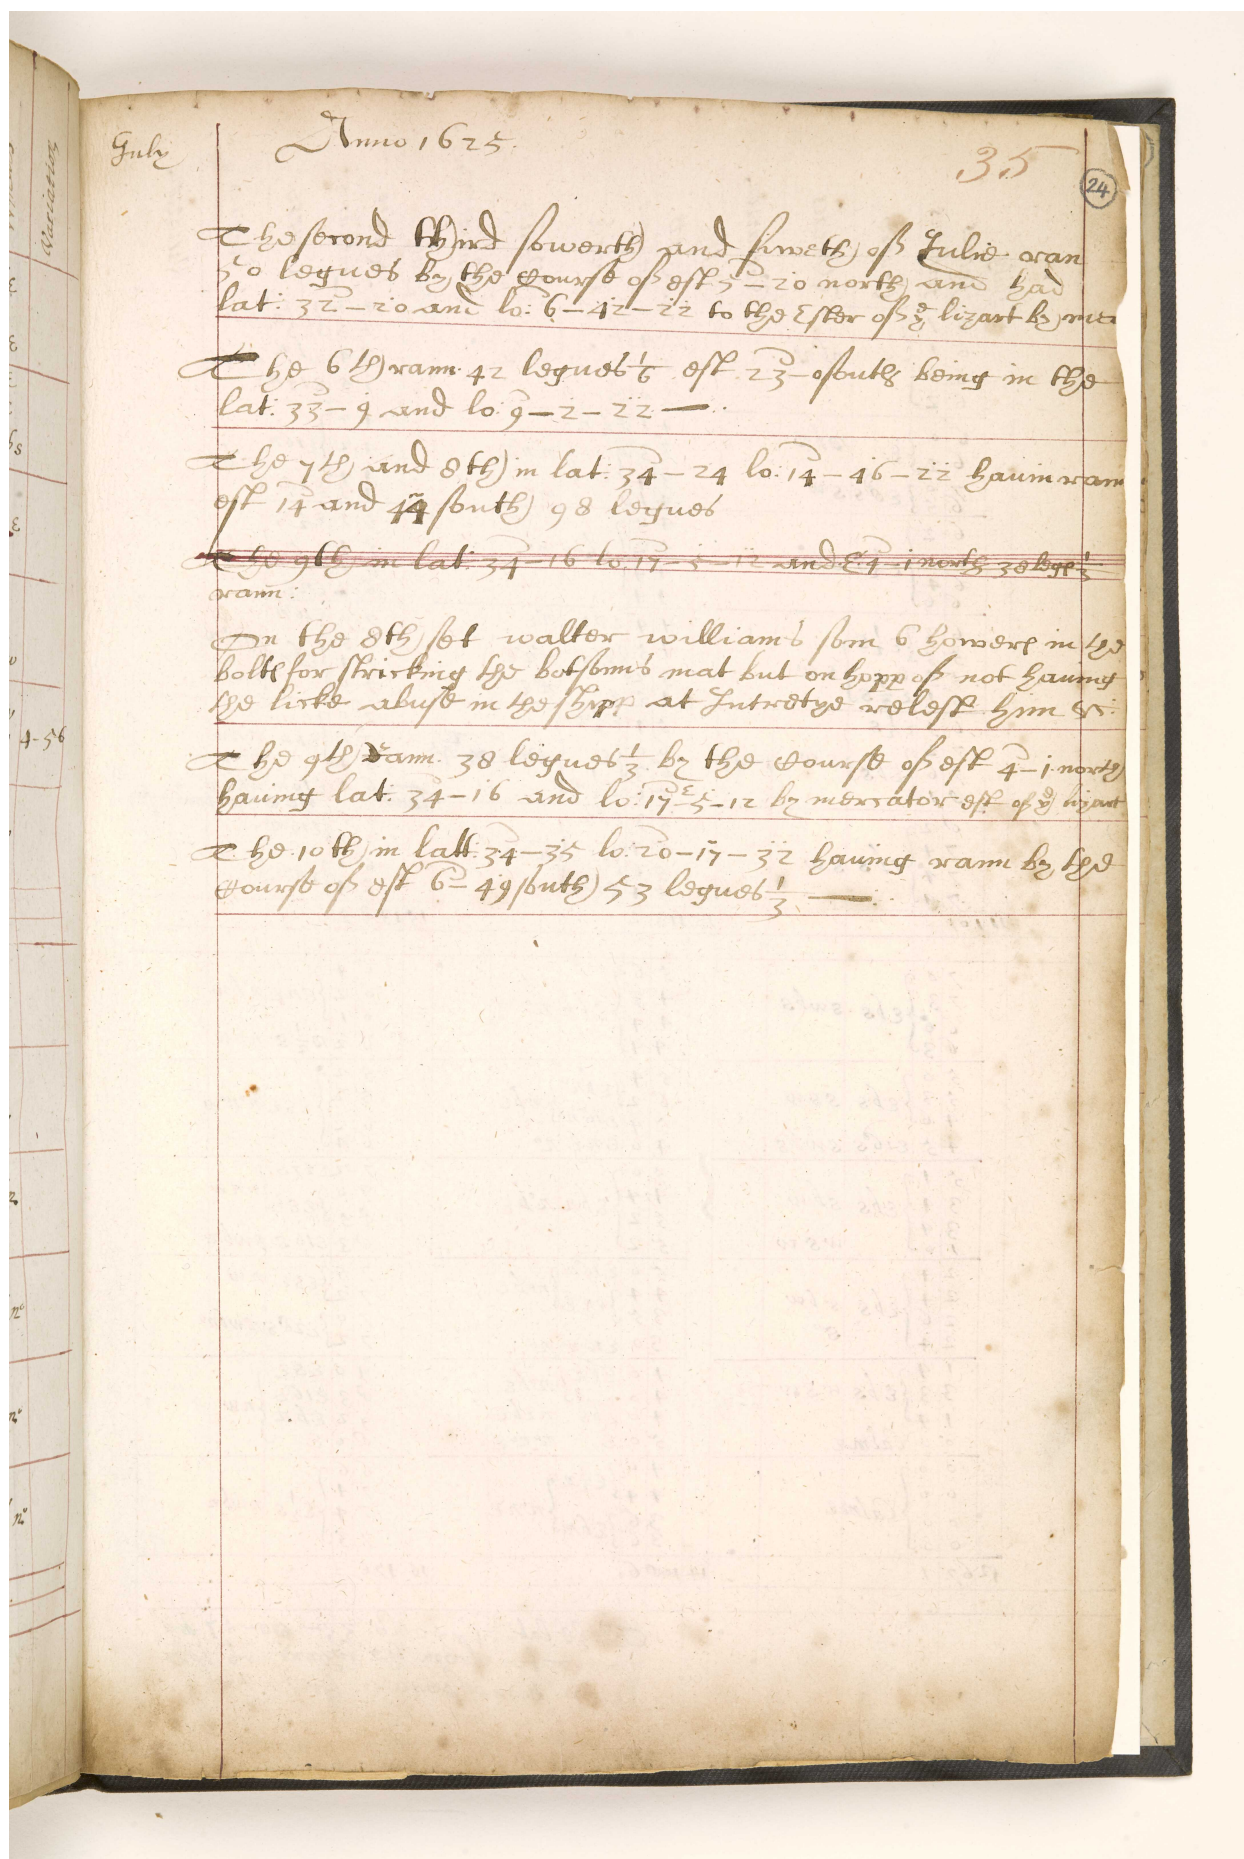 July
Anno 1625.
35
24
The second third fowerth and fiweth off Julie ran
50 legues by the course off est 5-20 north and had
lat: 32-20 and lo: 6-42-22 to the Ester off ye lizart by mer
The 6th rann 42 legues 1/6 est 23-0 south being in the
lat: 33-9 and lo: 9-2-22 —
The 7th and 8th in lat: 34-24 lo: 14-46-22 hauin rann
est 14 and 44 south 98 legues
The 9th in lat: 34-16 lo: 17-5-12 and E: 4-1 north 38 legs 1/3
rann:
On the 8th set walter williams som 6 howers in the
bolts for stricking the botsoms mat but on hopp off not hauing
the licke abuse in the shipp at Intretye relest him &c:
The 9th Rann 38 legues 1/3 by the course off est 4-1 north
hauing lat: 34-16 and lo: 17-5-12 by mercator est off ye lizart
The 10th in latt: 34-35 lo: 20-17-32 hauing rann by the
course off est 6-49 south 53 legues 1/3 —
Variation
4-56